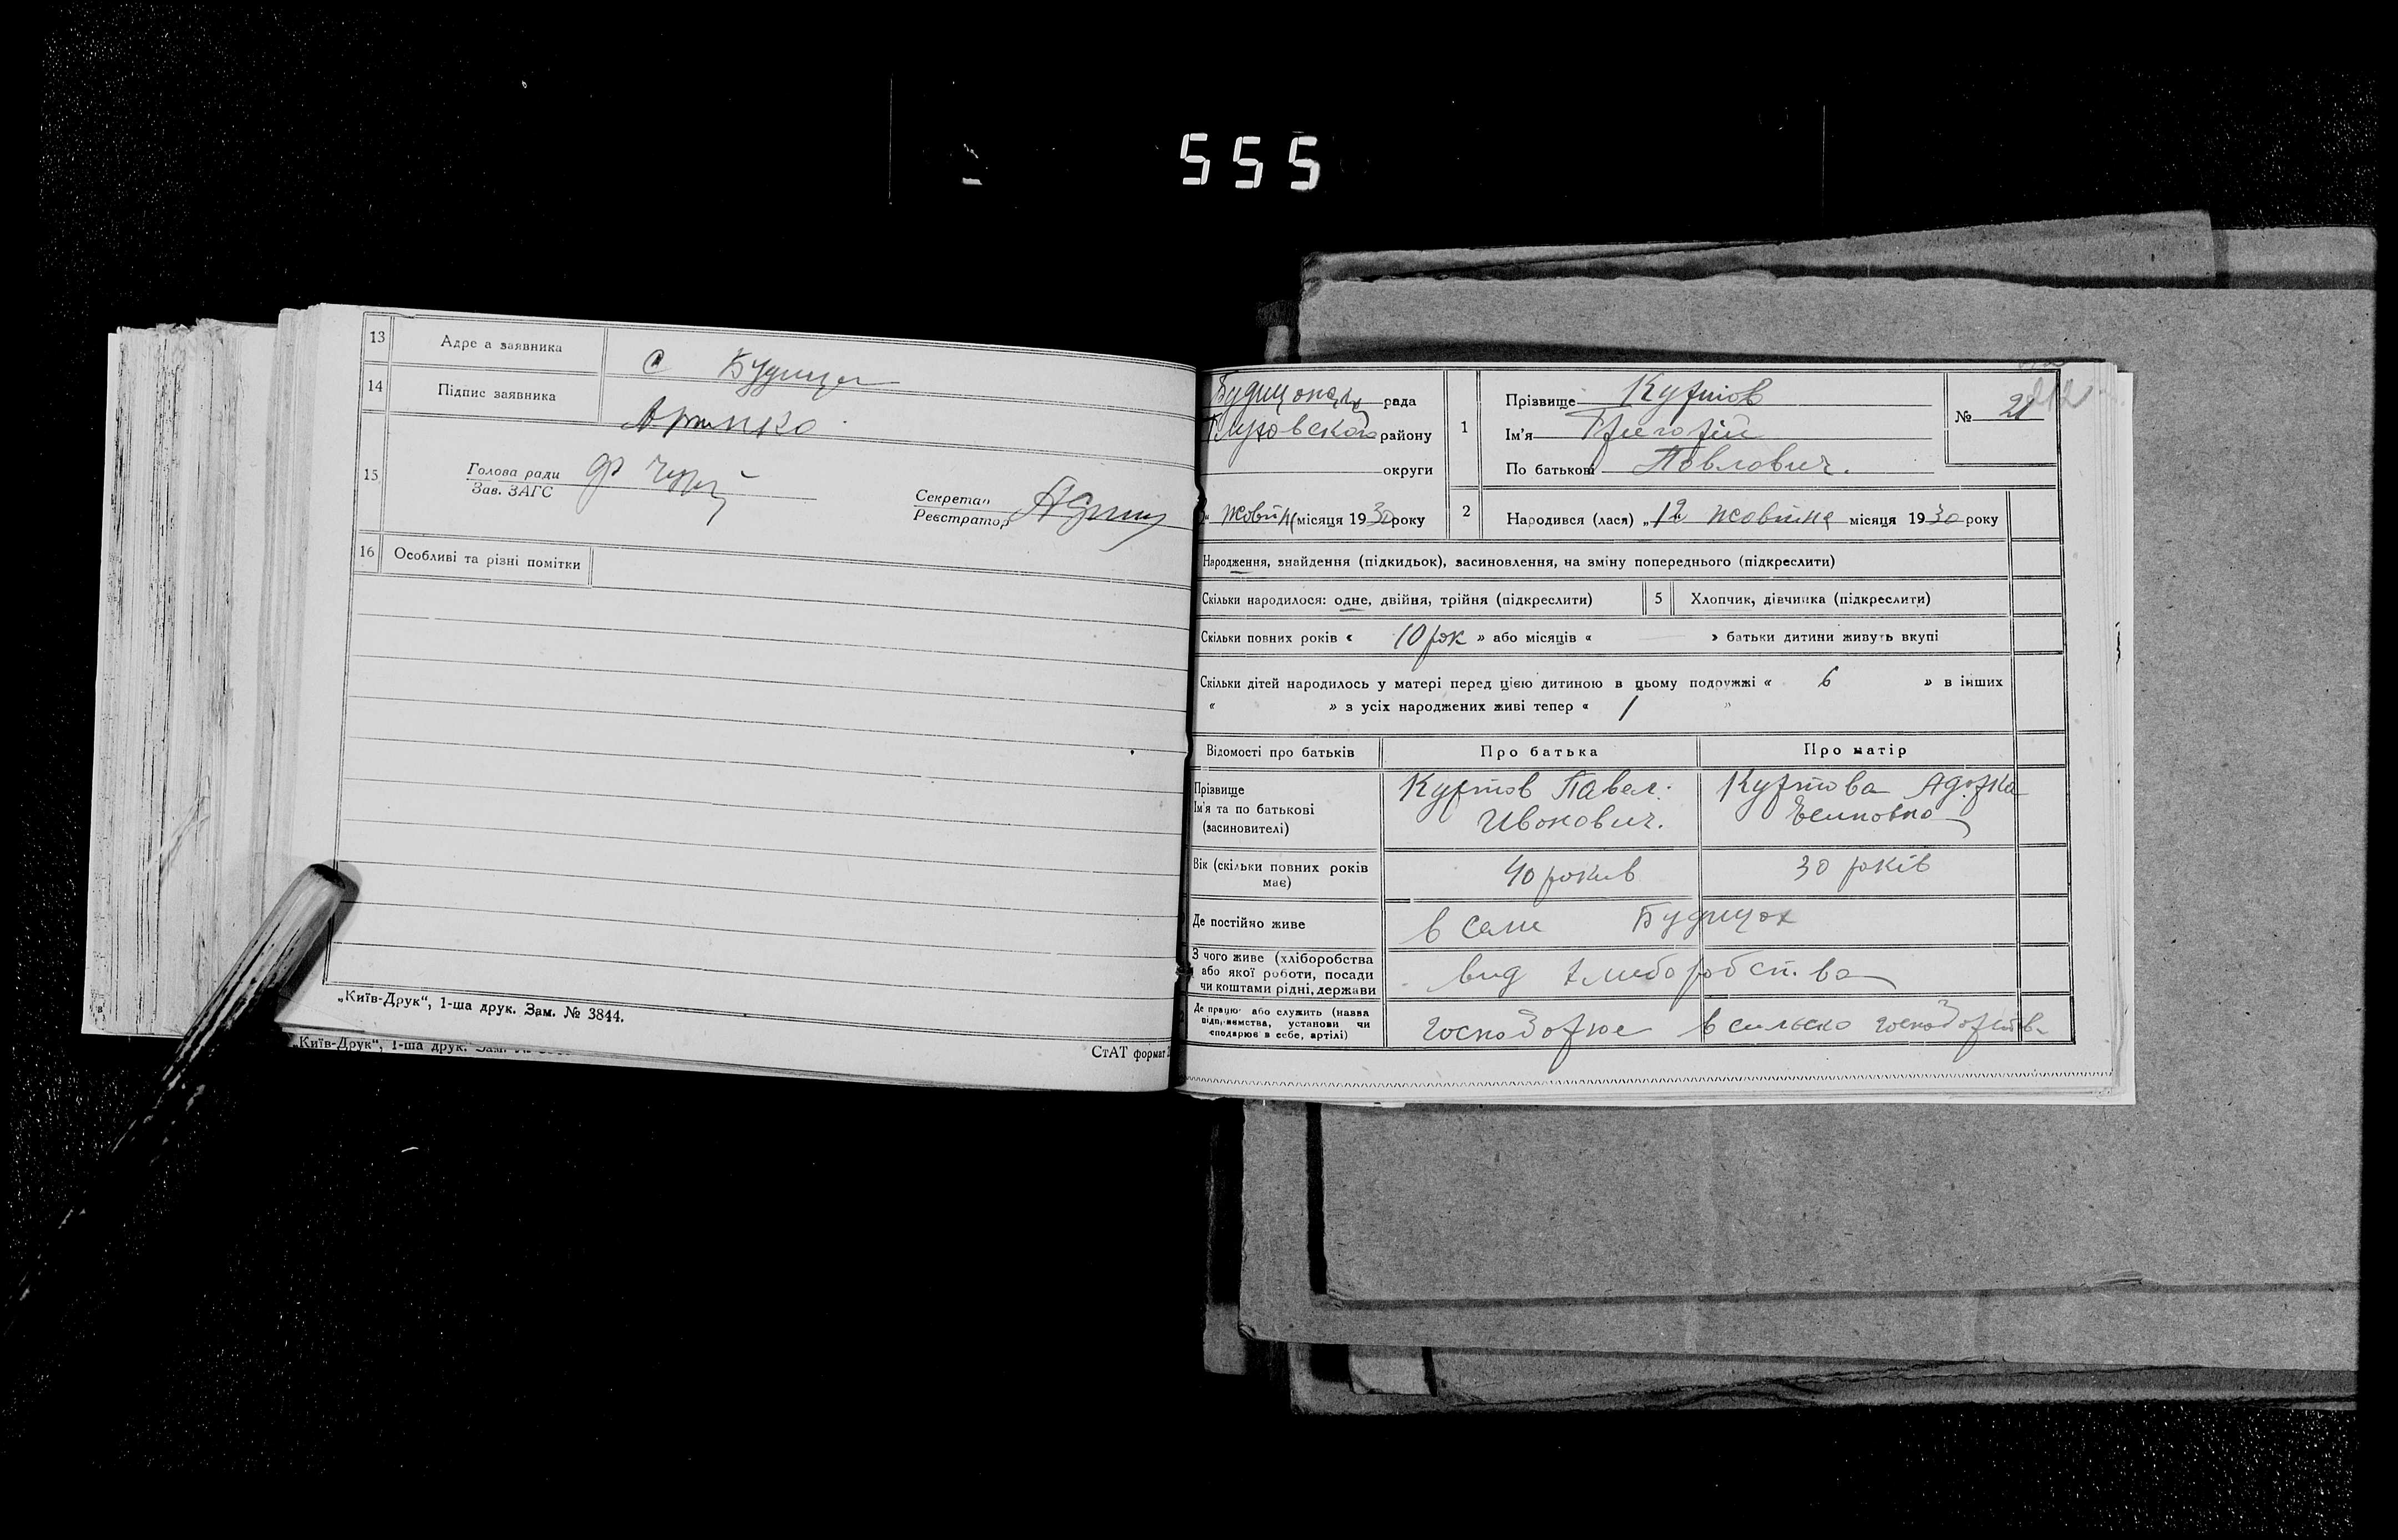 555
13 Адре а заявника с Будища
14 Підпис заявника
15 Голова ради
Зав. ЗАГС
Секретар
Реєстратор
16 Особливі та різні помітки
„Київ-Друк“, 1-ша друк. Зам. № 3844.
„Київ-Друк“, 1-ша друк.
СтАТ формат
рада
району
округи
місяця 1930 року
1 Прізвище Куртов
Ім'я Григорій
По батькові Павлович.
№ 21
2 Народився (лася) „12 жовтня місяця 1930 року
Народження, знайдення (підкидьок), засиновлення, на зміну попереднього (підкреслити)
Скільки народилося: одне, двійня, трійня (підкреслити) 5 Хлопчик, дівчинка (підкреслити)
Скільки повних років « 10 рок » або місяців « » батьки дитини живуть вкупі
Скільки дітей народилось у матері перед цією дитиною в цьому подружжі « 6 » в інших
« » з усіх народжених живі тепер « 1 »
Відомості про батьків Про батька Про матір
Прізвище
Ім'я та по батькові
(засиновителі)
Куртов Павел
Иванович.
Куртова
Вік (скільки повних років
має)
40 рокив 30 років
Де постійно живе в сели Будищах
З чого живе (хліборобства
або якої роботи, посади
чи коштами рідні, держави
вид хлиборобства
Де працює або служить (назва
підприємства, установи чи
господарює в себе, артілі)
господарює в сильско